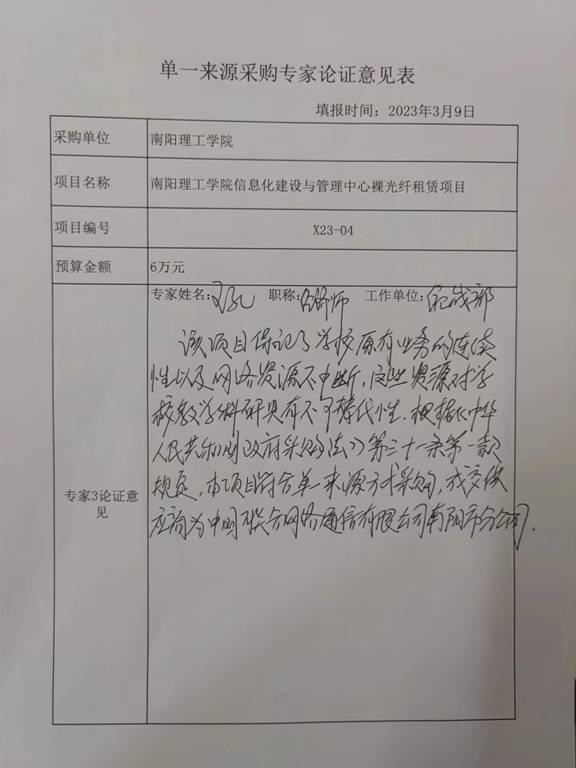 单一来源采购专家论证意见表
填报时间：2023年3月9日
采购单位 南阳理工学院
项目名称 南阳理工学院信息化建设与管理中心裸光纤租赁项目
项目编号 X23-04
预算金额 6万元
专家姓名： 职称： 师 工作单位：
专家3论证意
见
该项目保证了学校原有业务的连续
性以及网络资源不中断，这些资源对学
校教学科研具有不可替代性。根据《中华
人民共和国政府采购法》第三十一条第一款
规定，本项目符合单一来源方式采购，成交供
应商为中国联合网络通信有限公司南阳市分公司。